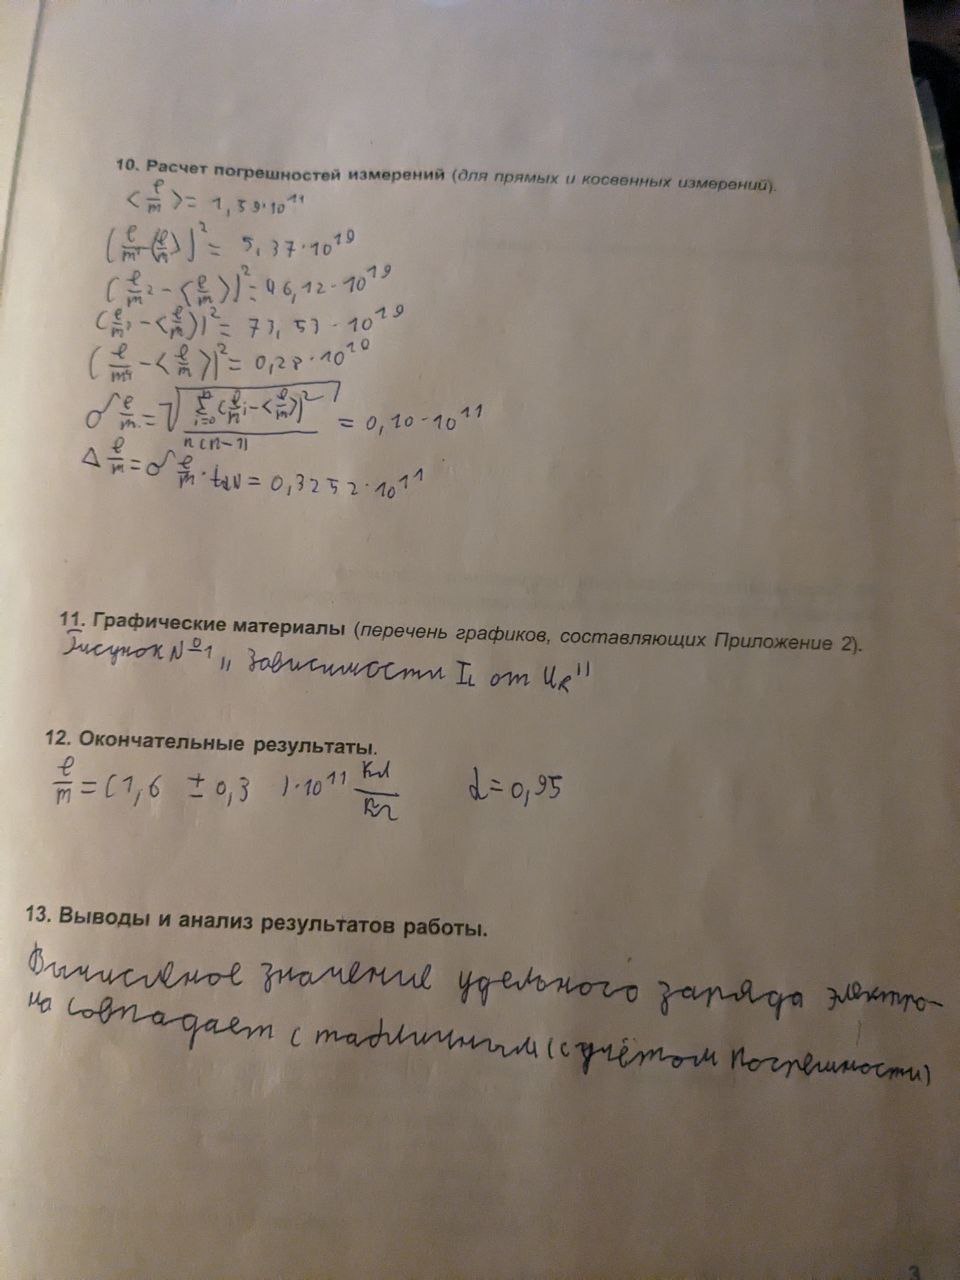 10. Расчет погрешностей измерений (для прямых и косвенных измерений).
<e/m> = 1,59·10^11
(e/m1 - <e/m>)^2 = 5,37·10^19
(e/m2 - <e/m>)^2 = 46,12·10^19
(e/m3 - <e/m>)^2 = 73,53·10^19
(e/m4 - <e/m>)^2 = 0,28·10^20
σ e/m = √(∑ i=0 (e/m i - <e/m>)^2 / n(n-1)) = 0,10·10^11
Δ e/m = σ e/m · tαN = 0,3252·10^11
11. Графические материалы (перечень графиков, составляющих Приложение 2).
Рисунок №1 „Зависимости IL от UR"
12. Окончательные результаты.
e/m = (1,6 ± 0,3)·10^11 Кл/Кг α = 0,95
13. Выводы и анализ результатов работы.
Вычисленое значение удельного заряда электро-
на совпадает с табличным (с учётом погрешности)
3